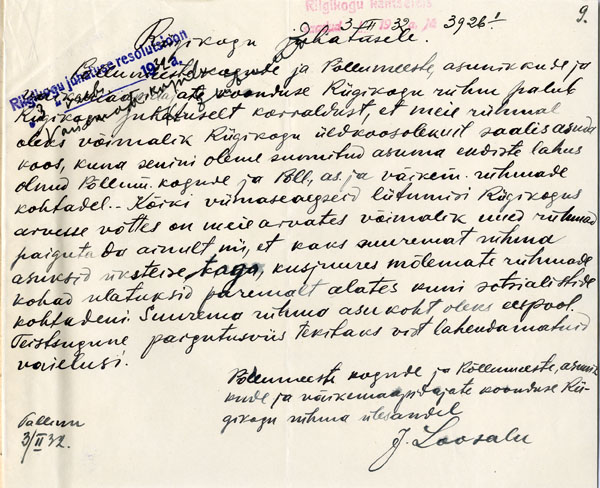 Riigikogu kantselei
3 II 32. 392b!
9.
Riigikogu juhatusele.
Riigikogu juhatuse resolutsioon
Põllumeestekogude ja Põllumeeste, asunikkude ja
koonduse Riigikogu rühm palub
Riigikogu juhatuselt korraldust, et meie rühmal
oleks võimalik Riigikogu üldkoosolekuil saalis asuda
koos, kuna senini oleme sunnitud asuma endiste lahus
olnud Põllum. kogude ja Põll., as. ja väikem. rühmade
kohtadel. – Kõiki viimaseaegseid liitumisi Riigikogus
arvesse võttes on meie arvates võimalik uued rühmad
paigutada ainult nii, et kaks suuremat rühma
asuksid üksteise taga, kusjuures mõlemate rühmade
kohad ulatuksid paremalt alates kuni sotsialistide
kohtadeni. Suurema rühma asukoht oleks eespool.
Teistsugune paigutusviis tekitaks vist lahendamatuid
vaielusi.
Põllumeeste kogude ja Põllumeeste, asunik-
kude ja väikemaapidajate koonduse Rii-
gikogu rühma ülesandel
Tallinn
3/II 32.
J. Loosalu